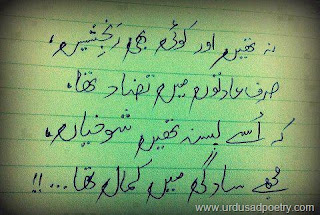 نہ تھیں اور کوئی بھی رَنجِشیں،
صرف عادتوں میں تضاد تھا،
کہ اُسے پسند تھیں شوخیاں،
مجھے سادگی میں کمال تھا...!!
www.urdusadpoetry.com